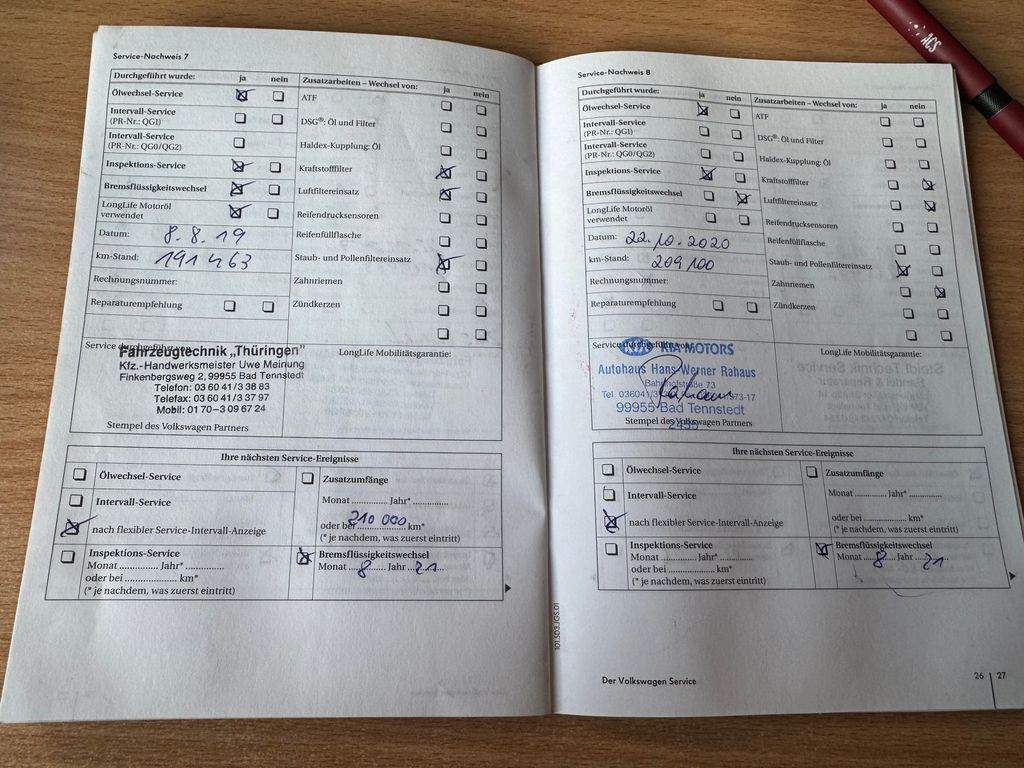 Service-Nachweis 7
Durchgeführt wurde: ja nein
Ölwechsel-Service
Intervall-Service
(PR-Nr.: QG1)
Intervall-Service
(PR-Nr.: QG0/QG2)
Inspektions-Service
Bremsflüssigkeitswechsel
LongLife Motoröl
verwendet
Datum: 8.8.19
km-Stand: 191 463
Rechnungsnummer:
Reparaturempfehlung
Zusatzarbeiten – Wechsel von: ja nein
ATF
DSG®: Öl und Filter
Haldex-Kupplung: Öl
Kraftstofffilter
Luftfiltereinsatz
Reifendrucksensoren
Reifenfüllflasche
Staub- und Pollenfiltereinsatz
Zahnriemen
Zündkerzen
Service durchgeführt von:
Fahrzeugtechnik „Thüringen"
Kfz.-Handwerksmeister Uwe Meinung
Finkenbergsweg 2, 99955 Bad Tennstedt
Telefon: 03 60 41/3 38 83
Telefax: 03 60 41/3 37 97
Mobil: 01 70–3 09 67 24
Stempel des Volkswagen Partners
LongLife Mobilitätsgarantie:
Ihre nächsten Service-Ereignisse
Ölwechsel-Service
Intervall-Service
nach flexibler Service-Intervall-Anzeige
Inspektions-Service
Monat .............. Jahr* ..............
oder bei .................... km*
(* je nachdem, was zuerst eintritt)
Zusatzumfänge
Monat ............ Jahr* ............
oder bei 210 000 km*
(* je nachdem, was zuerst eintritt)
Bremsflüssigkeitswechsel
Monat 8 Jahr 21
Service-Nachweis 8
Durchgeführt wurde: ja nein
Ölwechsel-Service
Intervall-Service
(PR-Nr.: QG1)
Intervall-Service
(PR-Nr.: QG0/QG2)
Inspektions-Service
Bremsflüssigkeitswechsel
LongLife Motoröl
verwendet
Datum: 22.10.2020
km-Stand: 209 100
Rechnungsnummer:
Reparaturempfehlung
Zusatzarbeiten – Wechsel von: ja nein
ATF
DSG®: Öl und Filter
Haldex-Kupplung: Öl
Kraftstofffilter
Luftfiltereinsatz
Reifendrucksensoren
Reifenfüllflasche
Staub- und Pollenfiltereinsatz
Zahnriemen
Zündkerzen
Service durchgeführt von:
KIA KIA MOTORS
Autohaus Hans-Werner Rahaus
Bahnhofstraße 73
Tel. 036041/3 73-17
99955 Bad Tennstedt
Stempel des Volkswagen Partners
LongLife Mobilitätsgarantie:
Ihre nächsten Service-Ereignisse
Ölwechsel-Service
Intervall-Service
nach flexibler Service-Intervall-Anzeige
Inspektions-Service
Monat .............. Jahr* ..............
oder bei .................... km*
(* je nachdem, was zuerst eintritt)
Zusatzumfänge
Monat ............ Jahr* ............
oder bei .................... km*
(* je nachdem, was zuerst eintritt)
Bremsflüssigkeitswechsel
Monat 8 Jahr 21
Der Volkswagen Service
26 | 27
ACS